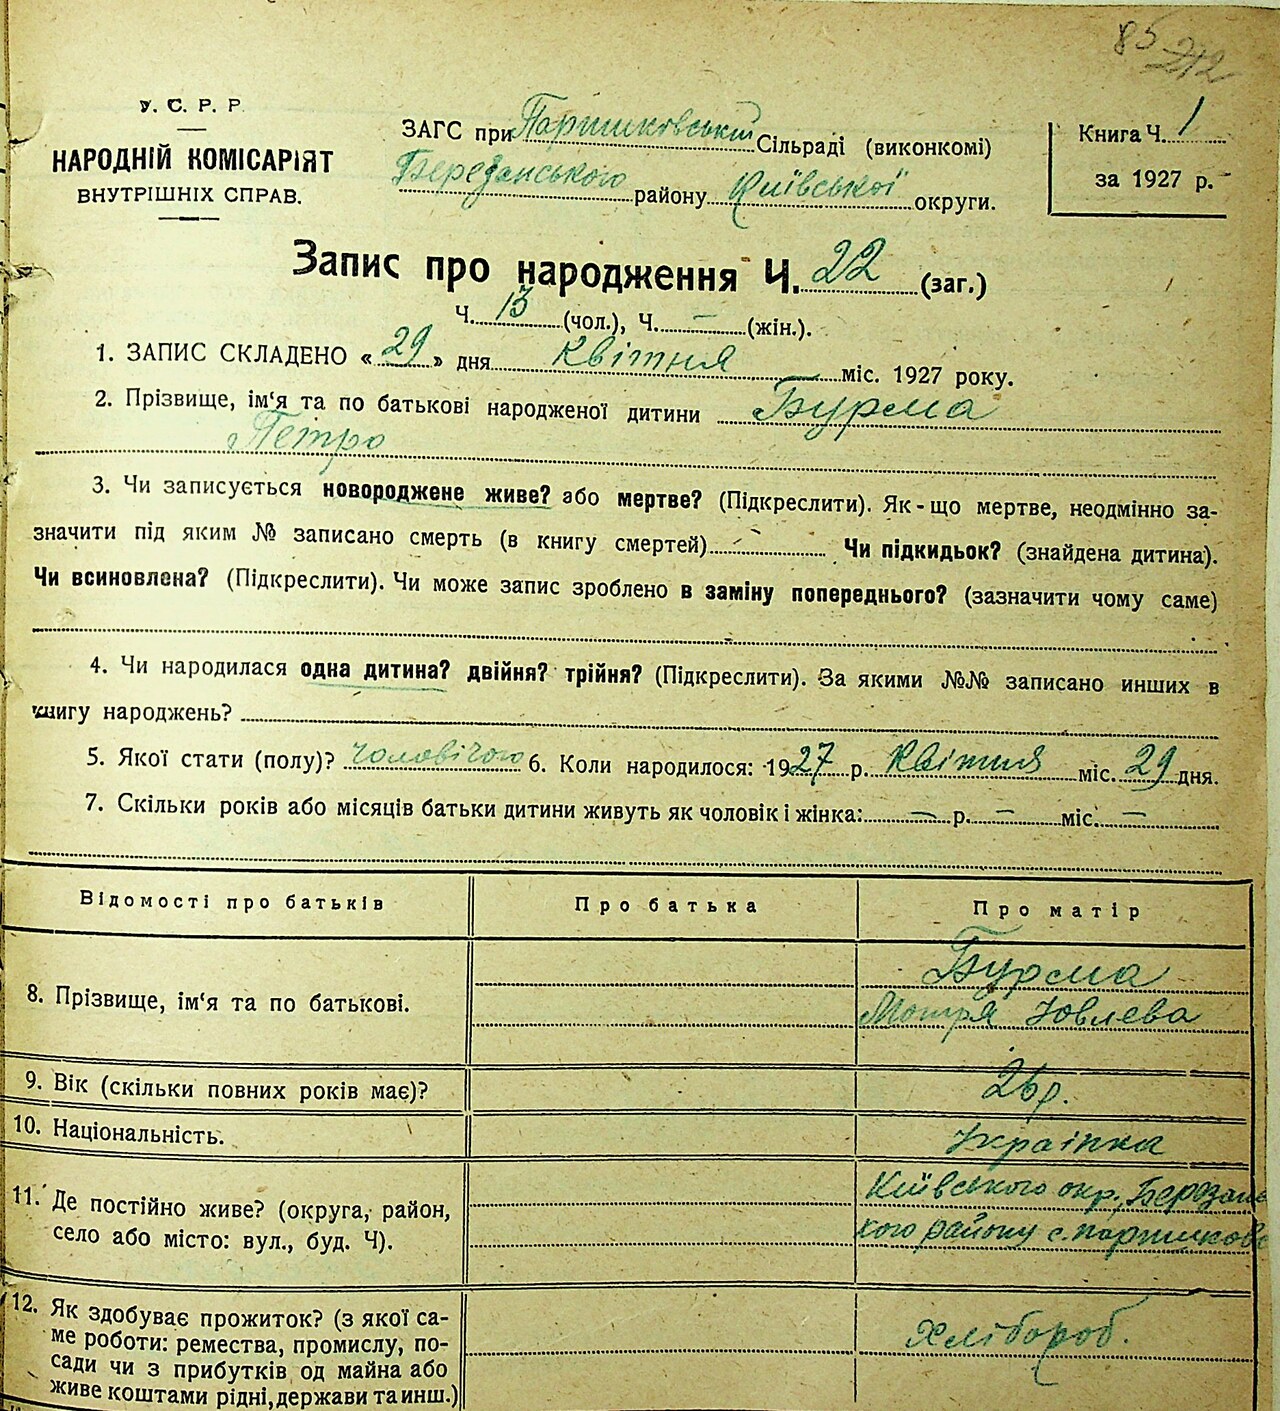 85 212
У. С. Р. Р
НАРОДНІЙ КОМІСАРІЯТ
ВНУТРІШНІХ СПРАВ.
ЗАГС при Паришковський Сільраді (виконкомі)
Березанського району Київської округи.
Книга Ч. 1
за 1927 р.
Запис про народження Ч. 22 (заг.)
Ч. 13 (чол.), Ч. – (жін.).
1. ЗАПИС СКЛАДЕНО « 29 » дня Квітня міс. 1927 року.
2. Прізвище, ім‘я та по батькові народженої дитини Бурма
Петро
3. Чи записується новороджене живе? або мертве? (Підкреслити). Як-що мертве, неодмінно за-
значити під яким № записано смерть (в книгу смертей) – Чи підкидьок? (знайдена дитина).
Чи всиновлена? (Підкреслити). Чи може запис зроблено в заміну попереднього? (зазначити чому саме)
4. Чи народилася одна дитина? двійня? трійня? (Підкреслити). За якими №№ записано инших в
книгу народжень?
5. Якої стати (полу)? чоловічого 6. Коли народилося: 1927 р. Квітня міс. 29 дня.
7. Скільки років або місяців батьки дитини живуть як чоловік і жінка: – р. – міс. –
Відомості про батьків Про батька Про матір
8. Прізвище, ім‘я та по батькові. Бурма
Мотря Іовлева
9. Вік (скільки повних років має)? 26 р.
10. Національність. Українка
11. Де постійно живе? (округа, район, Київського окр., Березанс
село або місто: вул., буд. Ч). кого району с. Паришков
12. Як здобуває прожиток? (з якої са-
ме роботи: ремества, промислу, по- Хлібороб.
сади чи з прибутків од майна або
живе коштами рідні, держави та инш.)